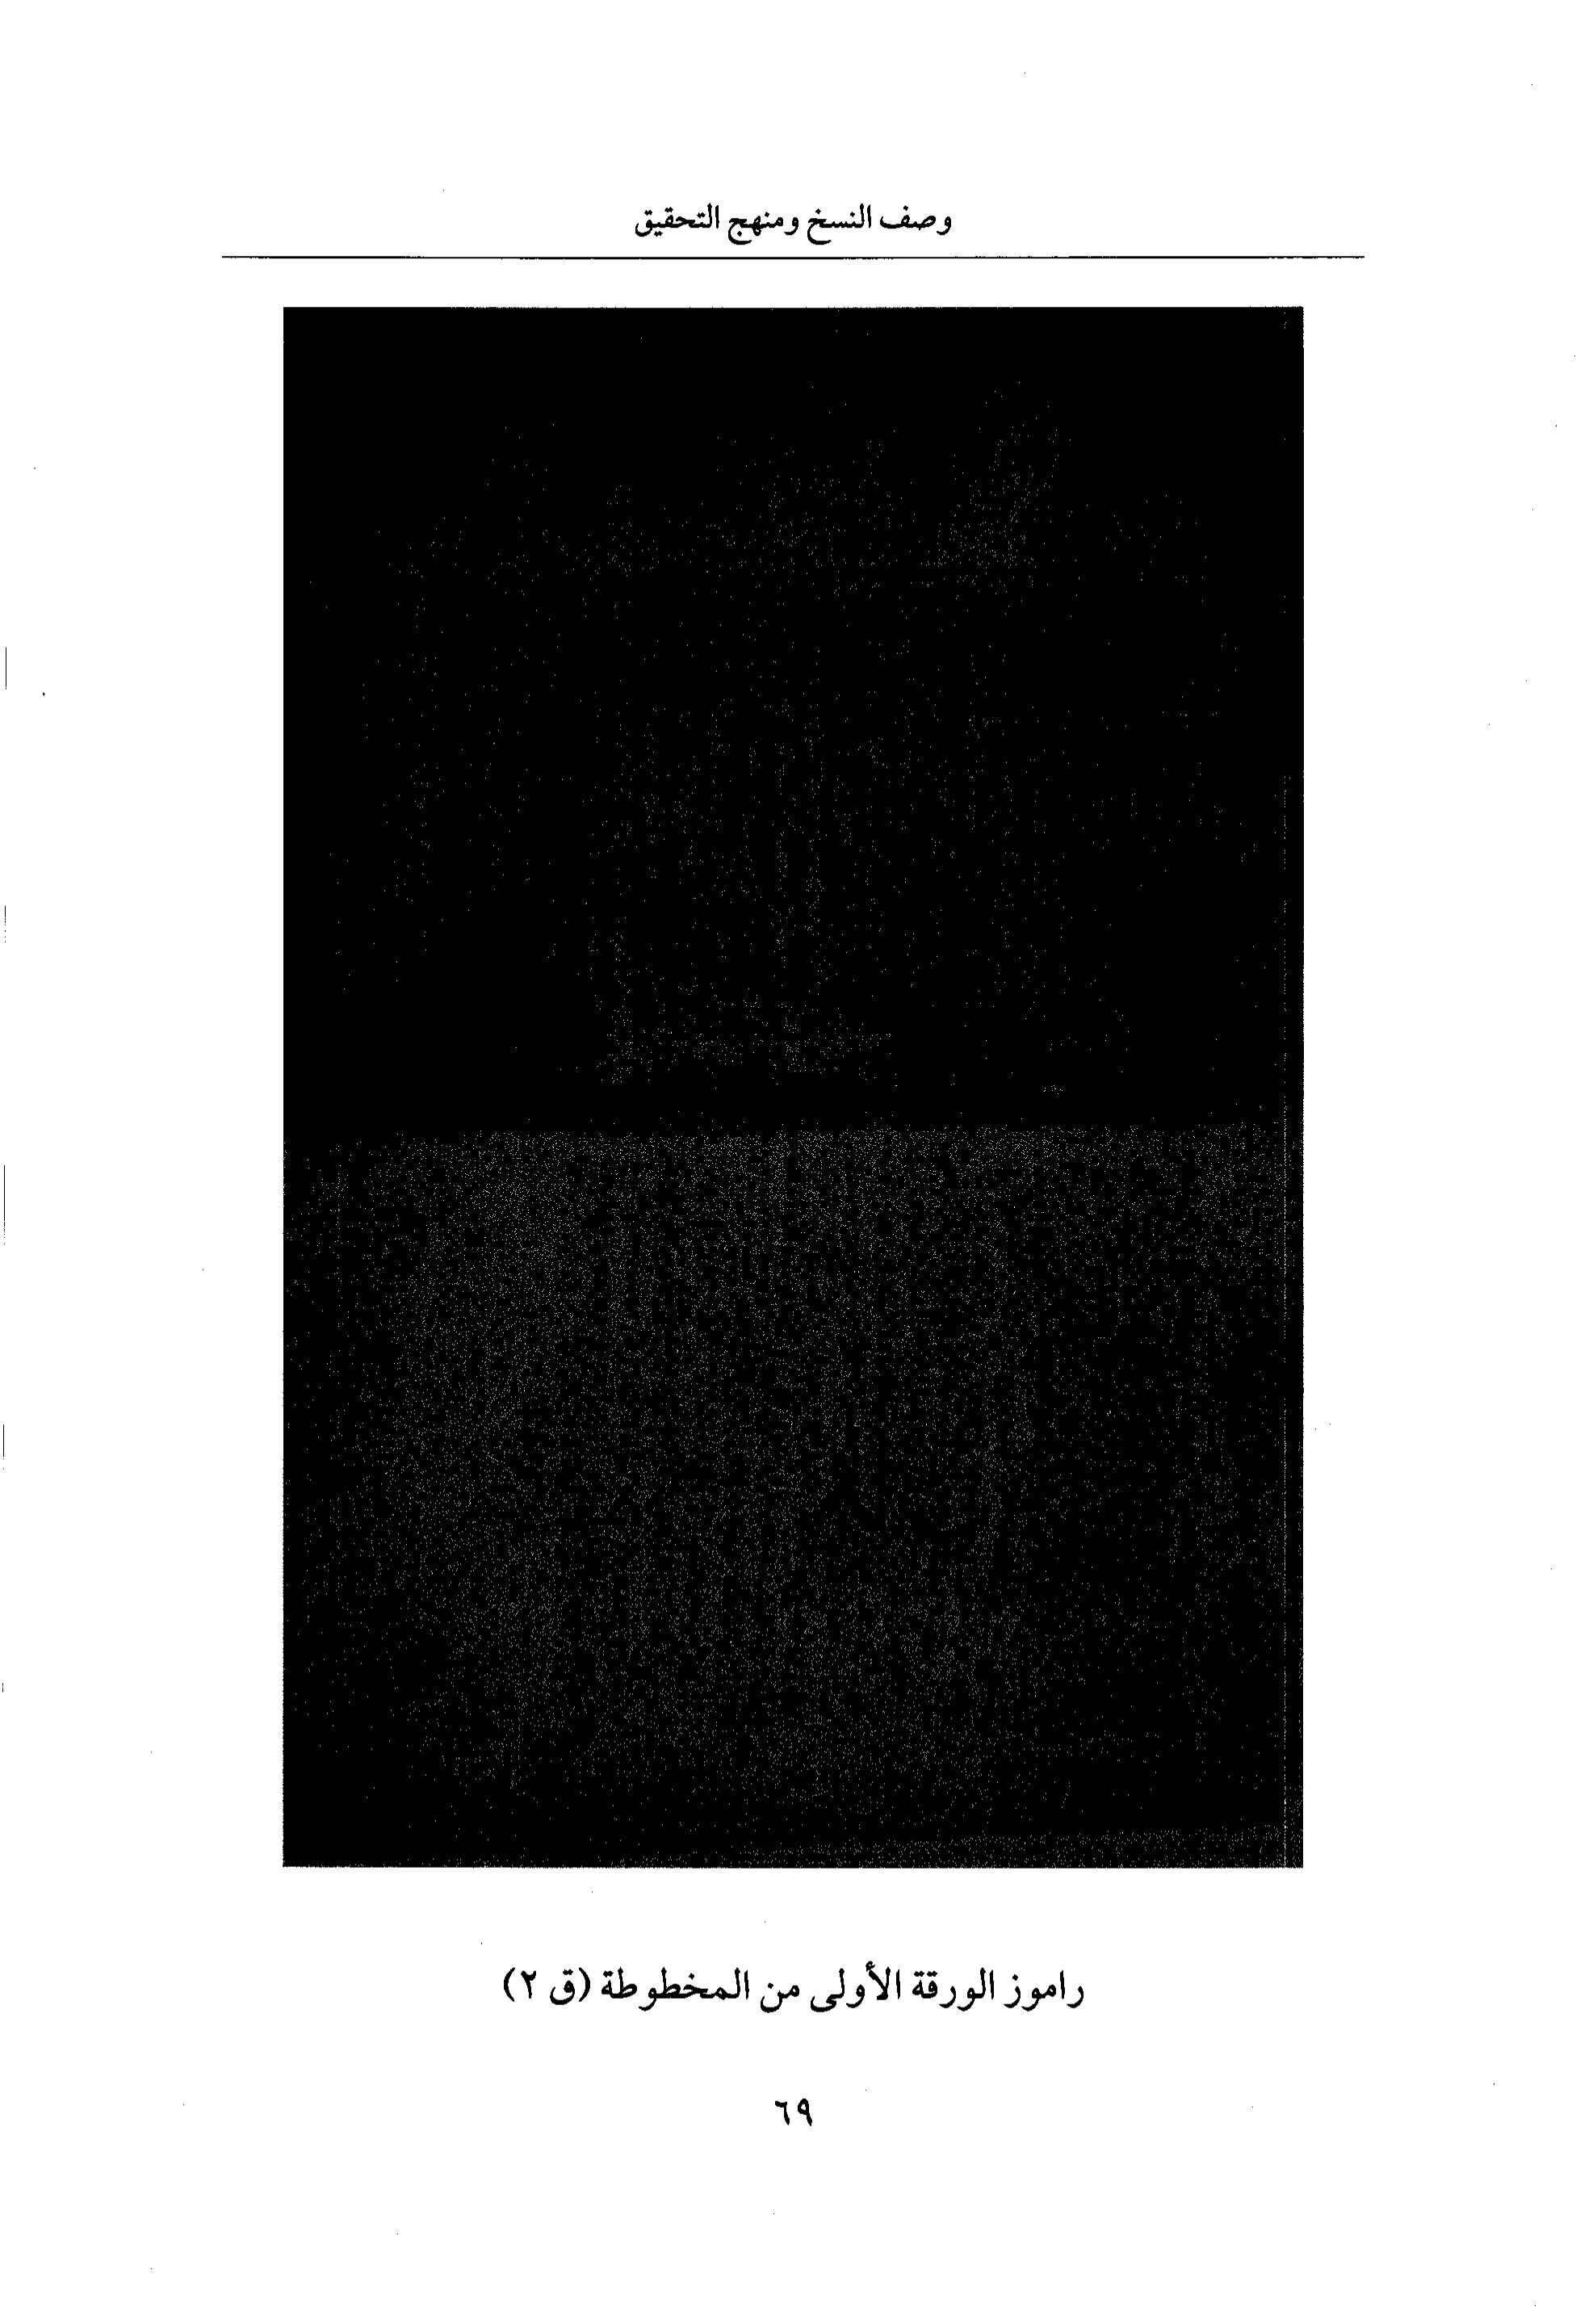 وصف النسخ ومنهج التحقيق
راموز الورقة الأولى من المخطوطة (ق ٢)
٦٩